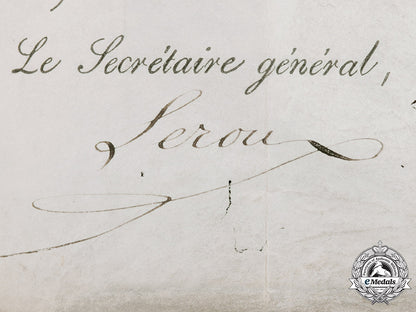 Le Secrétaire général,
Lerou
eMedals